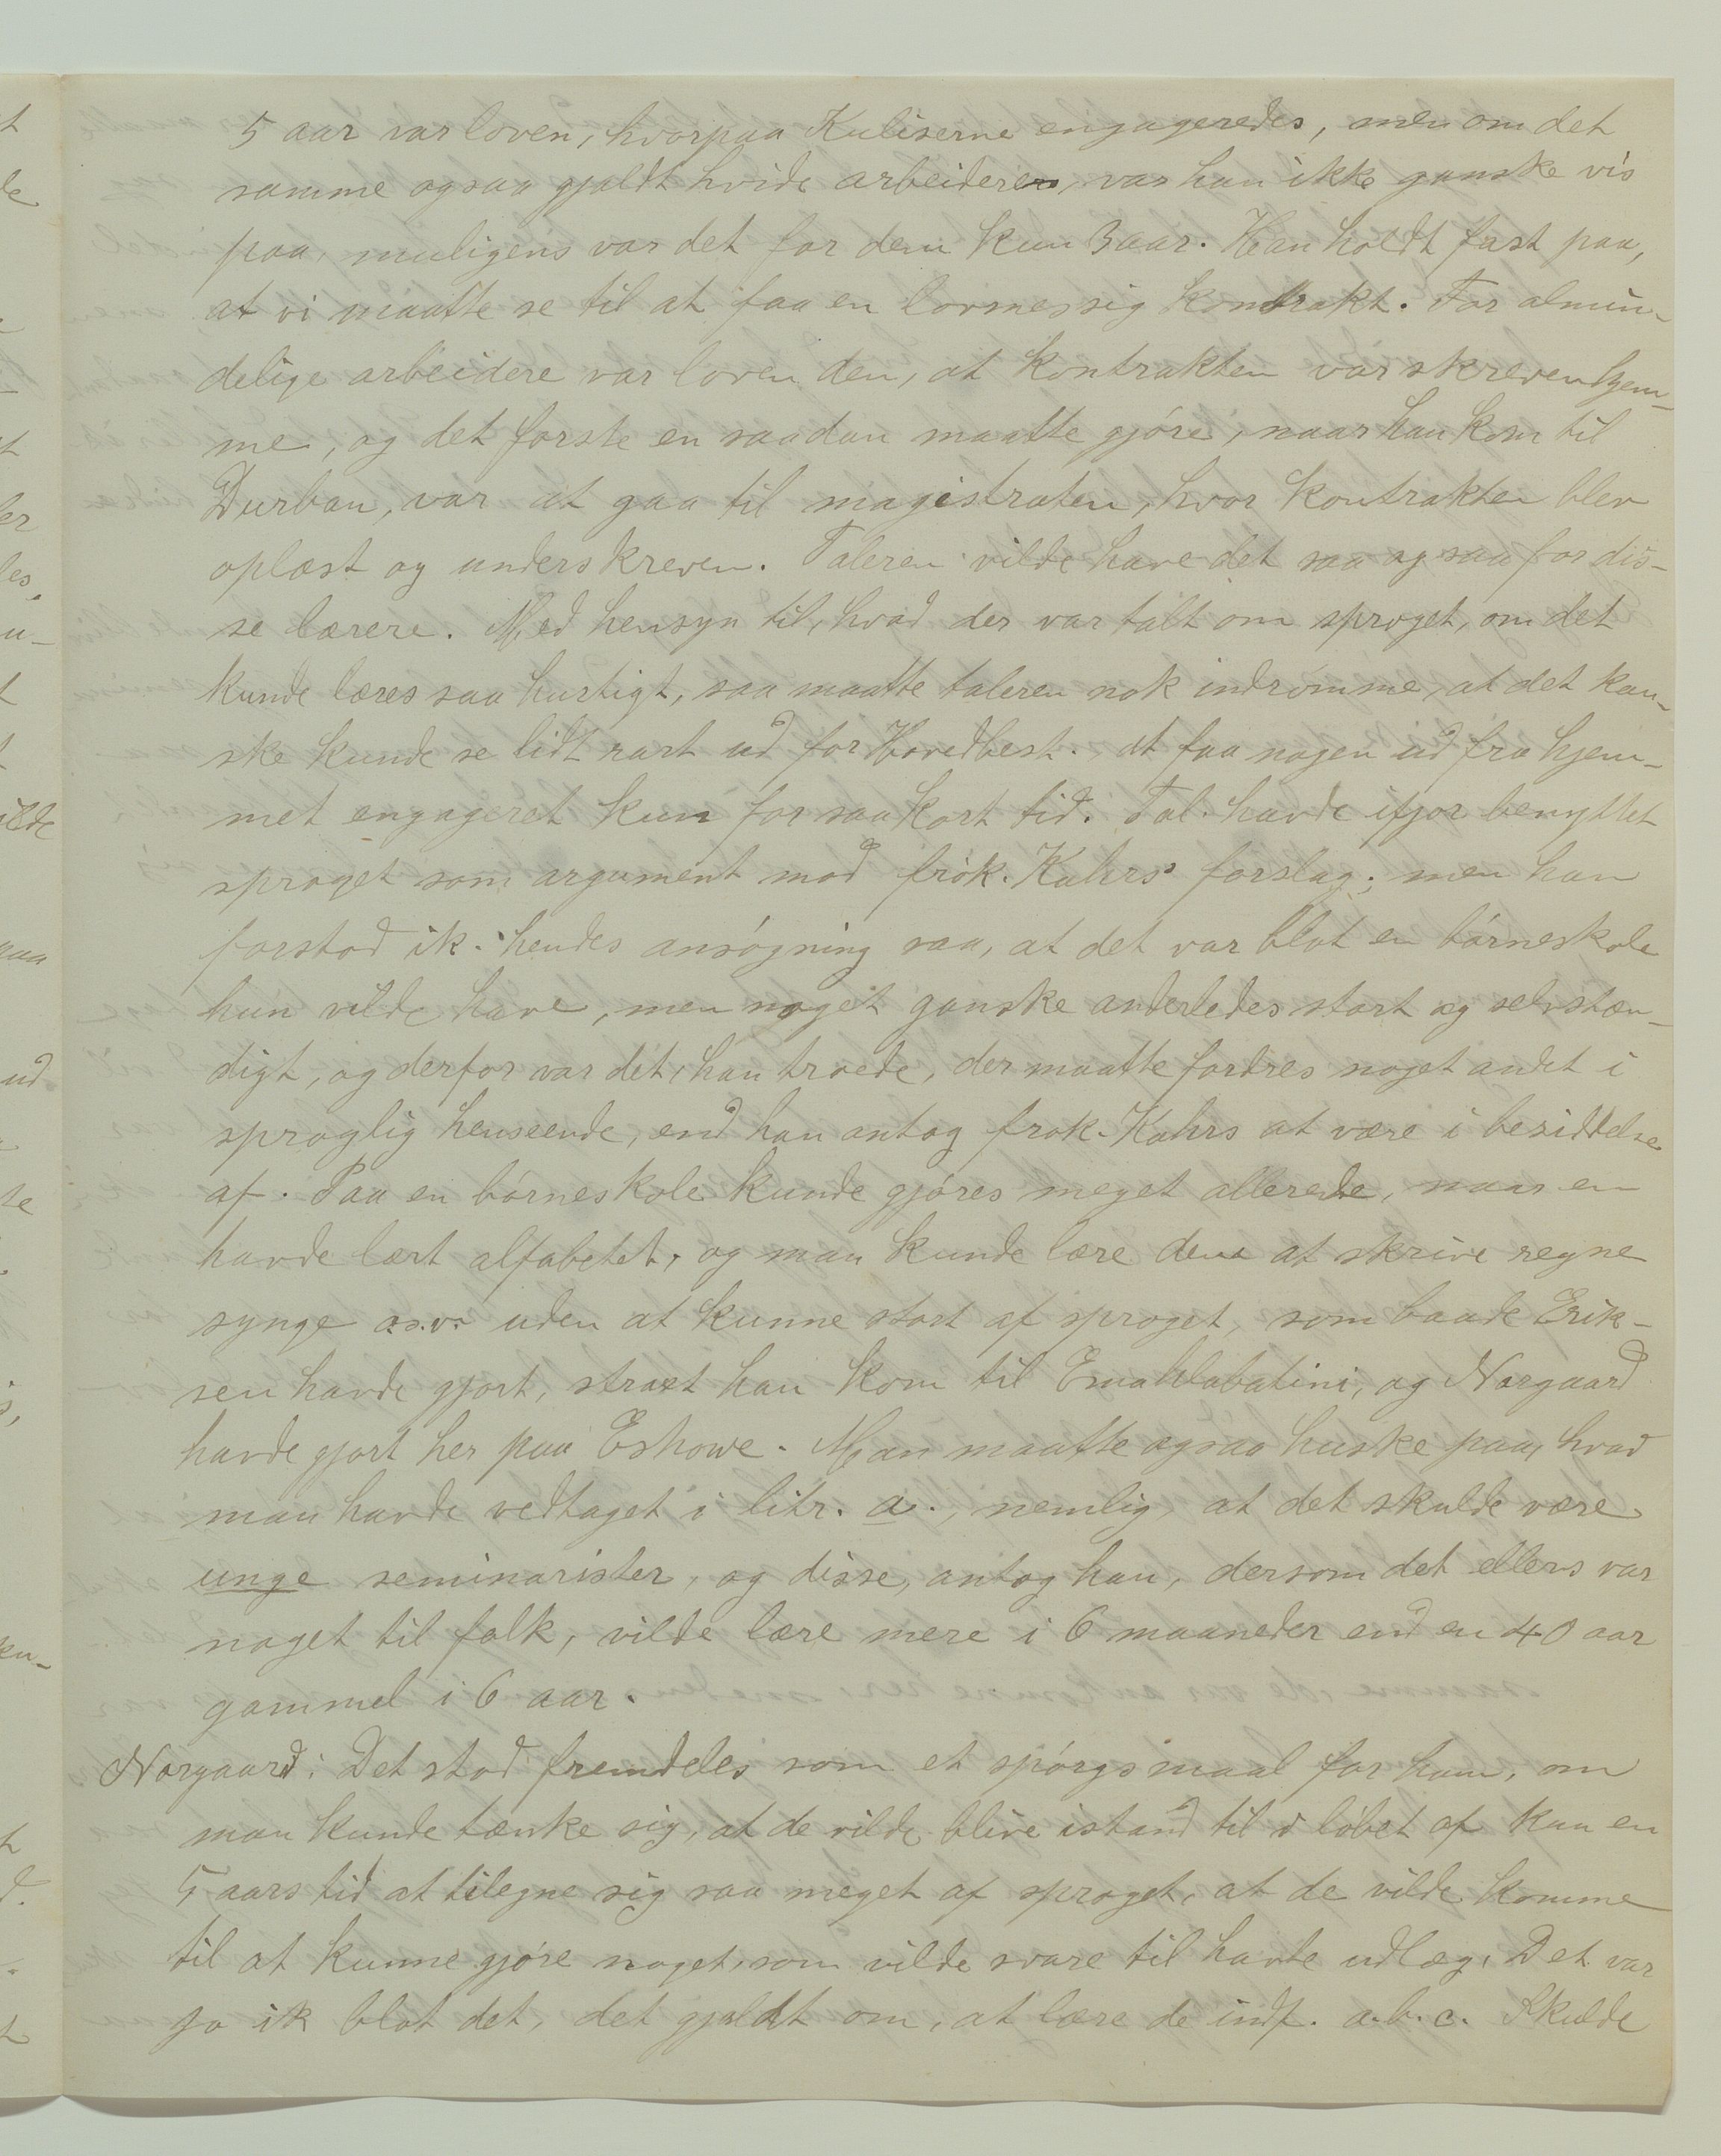 5 aar var loven, hvorpaa Kuliserne engageredes, men om det
samme ogsaa gjaldt hvide arbeidere, var han ikke ganske vis
paa, muligens var det for dem kun 3 aar. Han holdt fast paa,
at vi maatte se til at faa en lovmessig kontrakt. For almin-
delige arbeidere var loven den, at kontrakten var skreven hjem-
me, og det første en saadan maatte gjøre, naar han kom til
Durban, var at gaa til magistraten, hvor kontrakten blev
oplæst og underskreven. Taleren vilde have det saa ogsaa for dis-
se lærere. Med hensyn til, hvad der var talt om sproget, om det
kunde læres saa hurtigt, saa maatte taleren nok indrømme, at det kan-
ske kunde se lidt rart ud for Hovedbest. at faa nogen ud fra hjem-
met engageret kun for saa kort tid. Tal. havde ifjor benyttet
sproget som argument mod frøk. Kahrs forslag; men han
forstod ik. hendes ansøgning saa, at det var blot en børneskole
hun vilde have, men noget ganske anderledes stort og selvstæn-
digt, og derfor var det, han troede, der maatte fordres noget andet i
sproglig henseende, end han antog frøk. Kahrs at være i besiddelse
af. Paa en børneskole kunde gjøres meget allerede, naar en
havde lært alfabetet, og man kunde lære dem at skrive regne
synge o.s.v. uden at kunne stort af sproget, som baade Erik-
sen havde gjort, strax han kom til Emahlabatini, og Norgaard
havde gjort her paa Eshowe. Man maatte ogsaa huske paa, hvad
man havde vedtaget i litr. a., nemlig, at det skulde være
unge seminarister, og disse, antog han, dersom det ellers var
noget til folk, vilde lære mere i 6 maaneder end en 40 aar
gammel i 6 aar.
Norgaard: Det stod fremdeles som et spørgsmaal for ham, om
man kunde tænke sig, at de vilde blive istand til i løbet af kun en
5 aars tid at tilegne sig saa meget af sproget, at de vilde komme
til at kunne gjøre noget, som vilde svare til havte udlæg. Det var
jo ik blot det, det gjaldt om, at lære de indf. a.b.c. Skulde